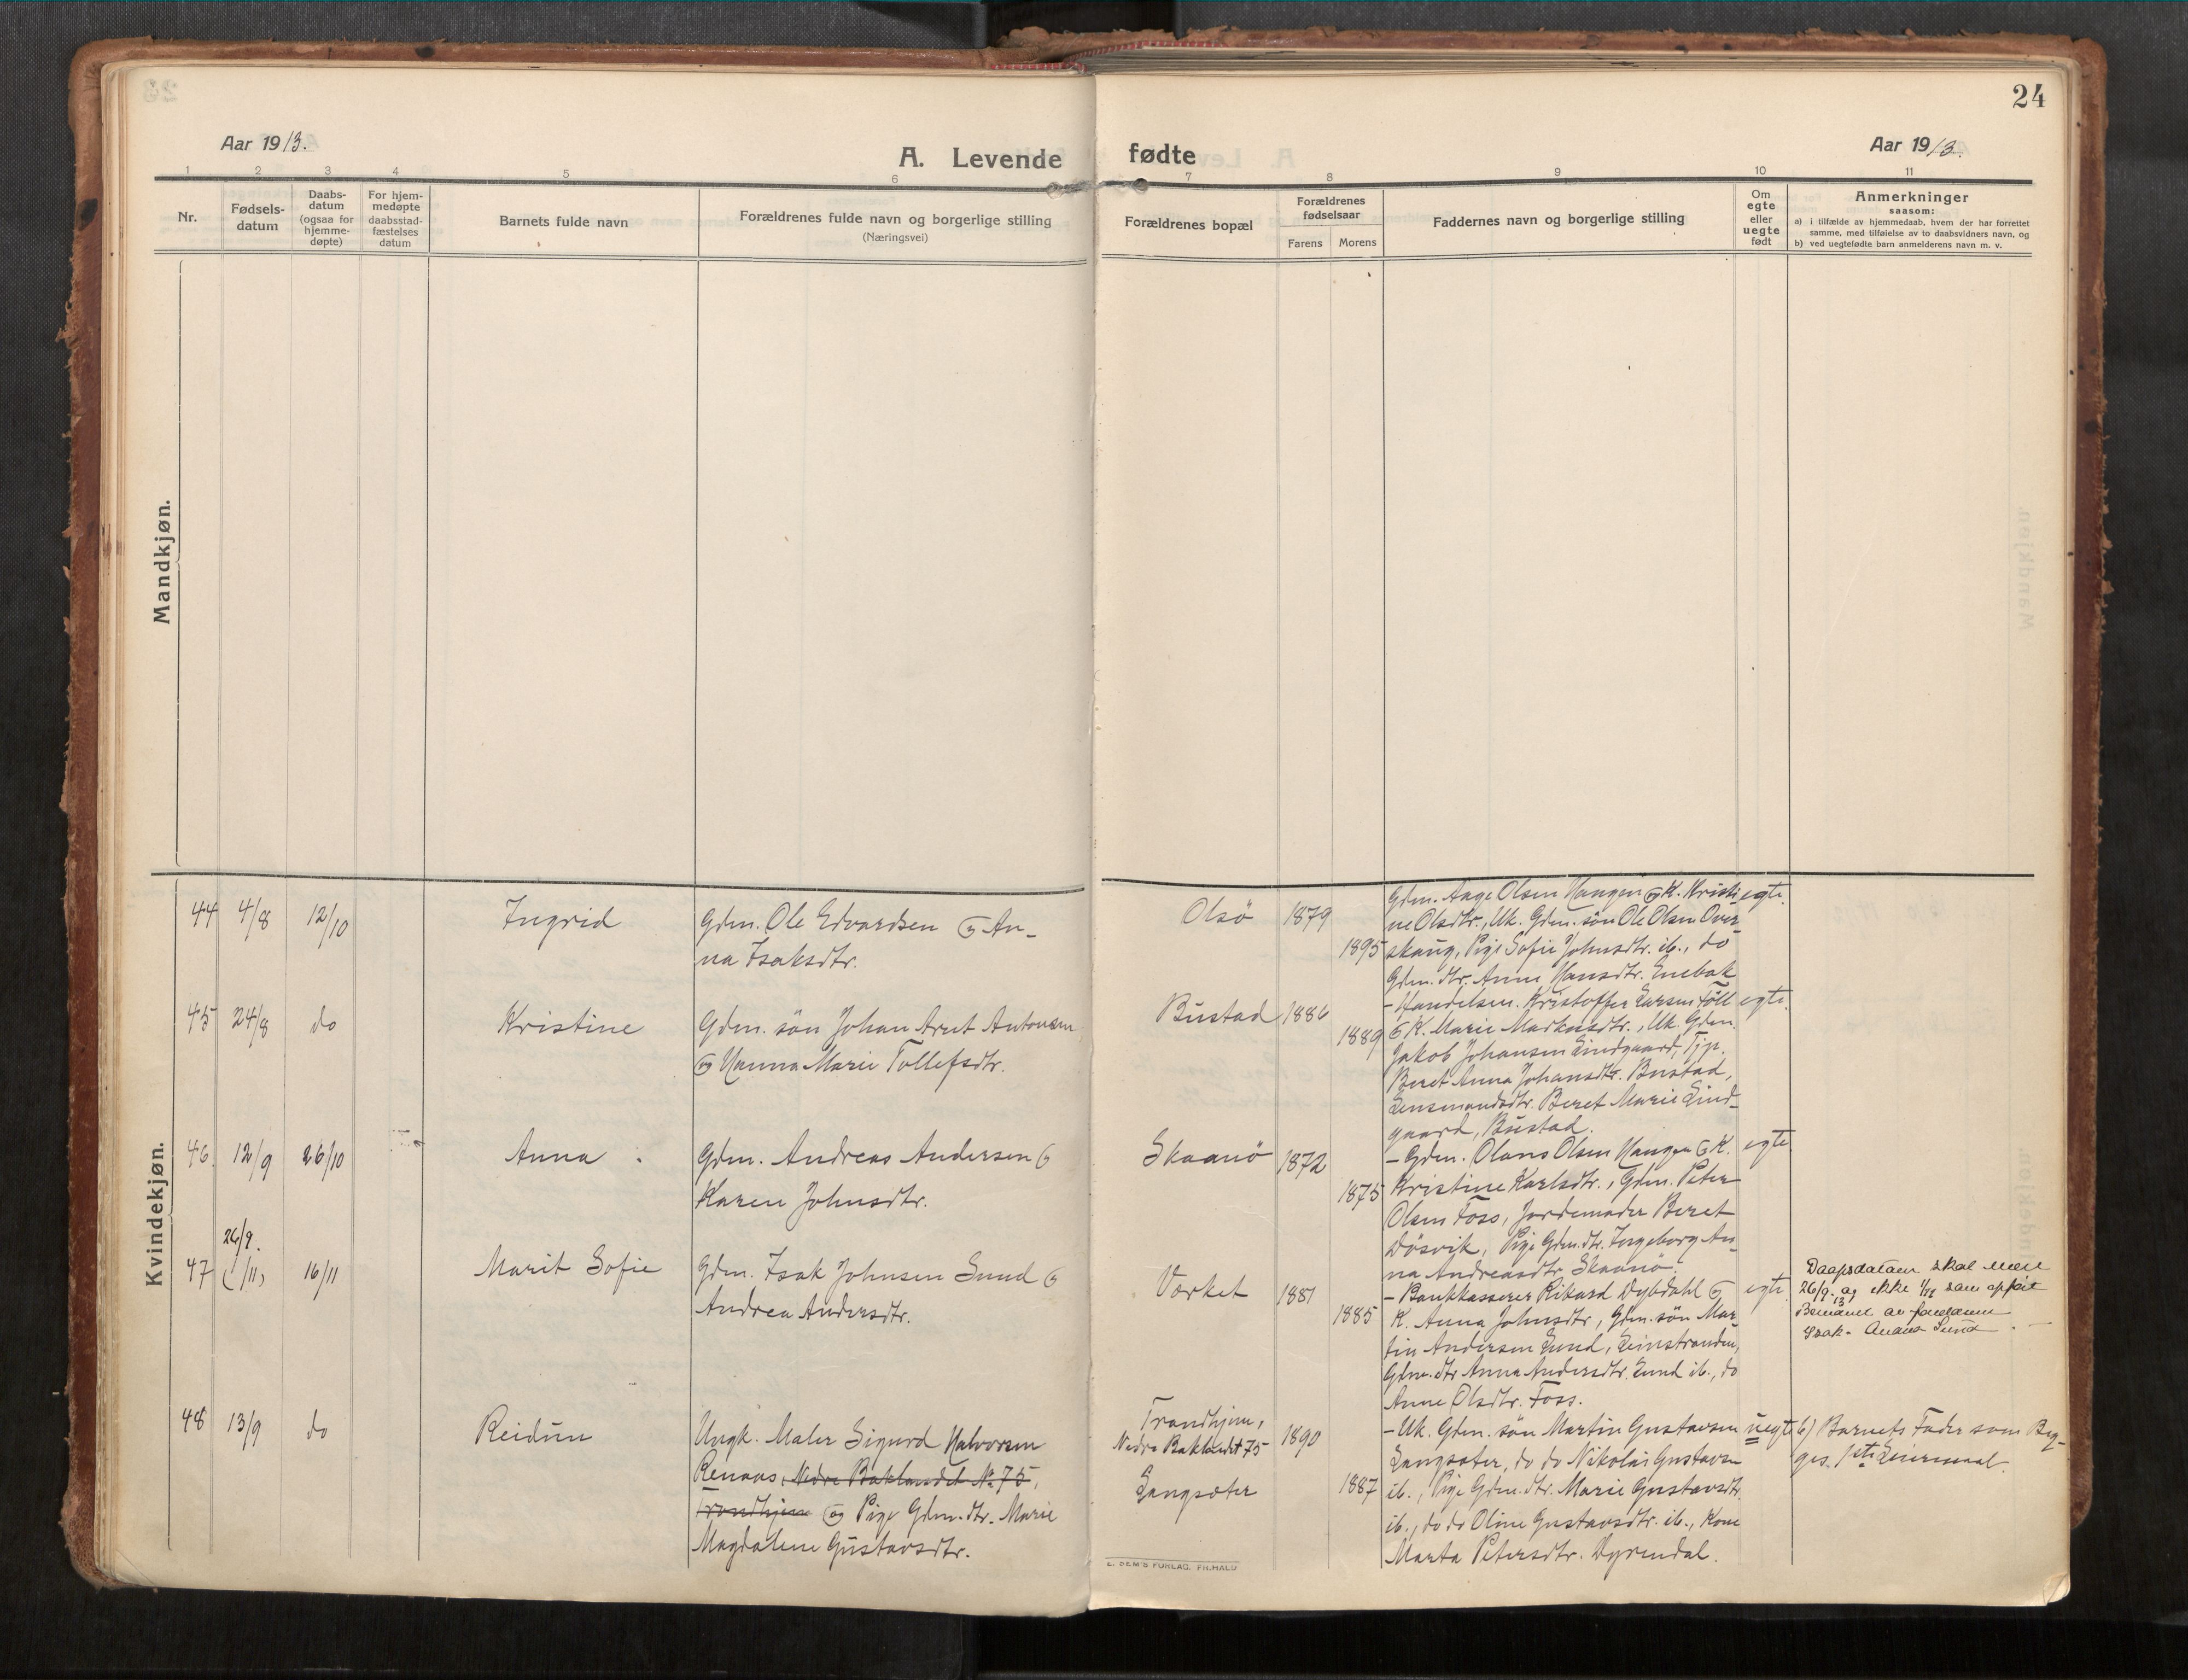 24
Aar 1913.
A. Levende fødte
Aar 1913.
1 2 3 4 5 6 7 8 9 10 11
Nr.
Fødsels-
datum
Daabs-
datum
(ogsaa for
hjemme-
døpte)
For hjem-
medøpte
daabsstad-
fæstelses
datum
Barnets fulde navn
Forældrenes fulde navn og borgerlige stilling
(Næringsvei)
Forældrenes bopæl
Forældrenes
fødselsaar
Farens Morens
Faddernes navn og borgerlige stilling
Om
egte
eller
uegte
født
Anmerkninger
saasom:
a) i tilfælde av hjemmedaab, hvem der har forrettet
samme, med tilføielse av to daabsvidners navn, og
b) ved uegtefødte barn anmelderens navn m. v.
Mandkjøn.
Kvindekjøn.
44 4/8 12/10 Ingrid
Gdm. Ole Edvardsen og An-
na Isaksdtr.
Olsö 1879
1895
Gdm. Aage Olsen Haugen og K. Kristi-
ne Olsdtr., Uk. Gdm. sön Ole Olsen Over-
skaug, Pige Sofie Johnsdtr. ib., do
Gdm. dtr. Anne Hansdtr. Enebak
egte
45 24/8 do Kristine
Gdm. sön Johan Arnt Antonsen
og Hanna Marie Tollefsdtr.
Bustad 1886
1889
- Handelsm. Kristoffer Larsen Föll
og K. Marie Markusdtr., Uk. Gdm.
Jakob Johansen Lindgaard, Tjp.
Beret Anna Johansdtr. Bustad,
Lensmandsdtr. Beret Marie Lind-
gaard, Bustad.
egte
46 12/9 26/10 Anna
Gdm. Andreas Andersen og
Karen Johnsdtr.
Skaanö 1872
1875
- Gdm. Olaus Olsen Haugen og K.
Kristine Karlsdtr., Gdm. Peter
Olsen Foss, Jordemoder Beret
Dösvik, Pige Gdm. dtr. Ingeborg An-
na Andreasdtr. Skaanö.
egte
26/9.
47 (1/11) 16/11 Marit Sofie
Gdm. Isak Johnsen Lund og
Andrea Andersdtr.
Værket 1881
1885
- Bankkasserer Rikard Dybdahl og
K. Anna Johnsdtr., Gdm. sön Mar-
tin Andersen Lund, Leinstranden,
Gdm. dtr Anna Andersdtr. Lund ib., do
Anne Olsdtr. Foss.
egte
skal være
26/9. 13 og ikke 1/11 som
av
Isak
48 13/9 do Reidun
Ungk. Maler Sigurd Halvorsen
Renaas, Nedre Baklandet No 75,
Trondhjem og Pige Gdm. dtr. Marie
Magdalene Gustavsdtr.
Trondhjem,
Nedre Baklandet 75
Langsæter
1890
1887
- Uk. Gdm. sön Martin Gustavsen
Langsæter, do do Nikolai Gustavsen
ib., Pige Gdm. dtr. Marie Gustavsdtr.
ib., do do Oline Gustavsdtr. ib., Kone
Marta Petersdtr. Dyrendal.
uegte
b) Barnets Fader som Beg-
ges 1ste Leiermaal.
E. SEM'S FORLAG. FR.HALD